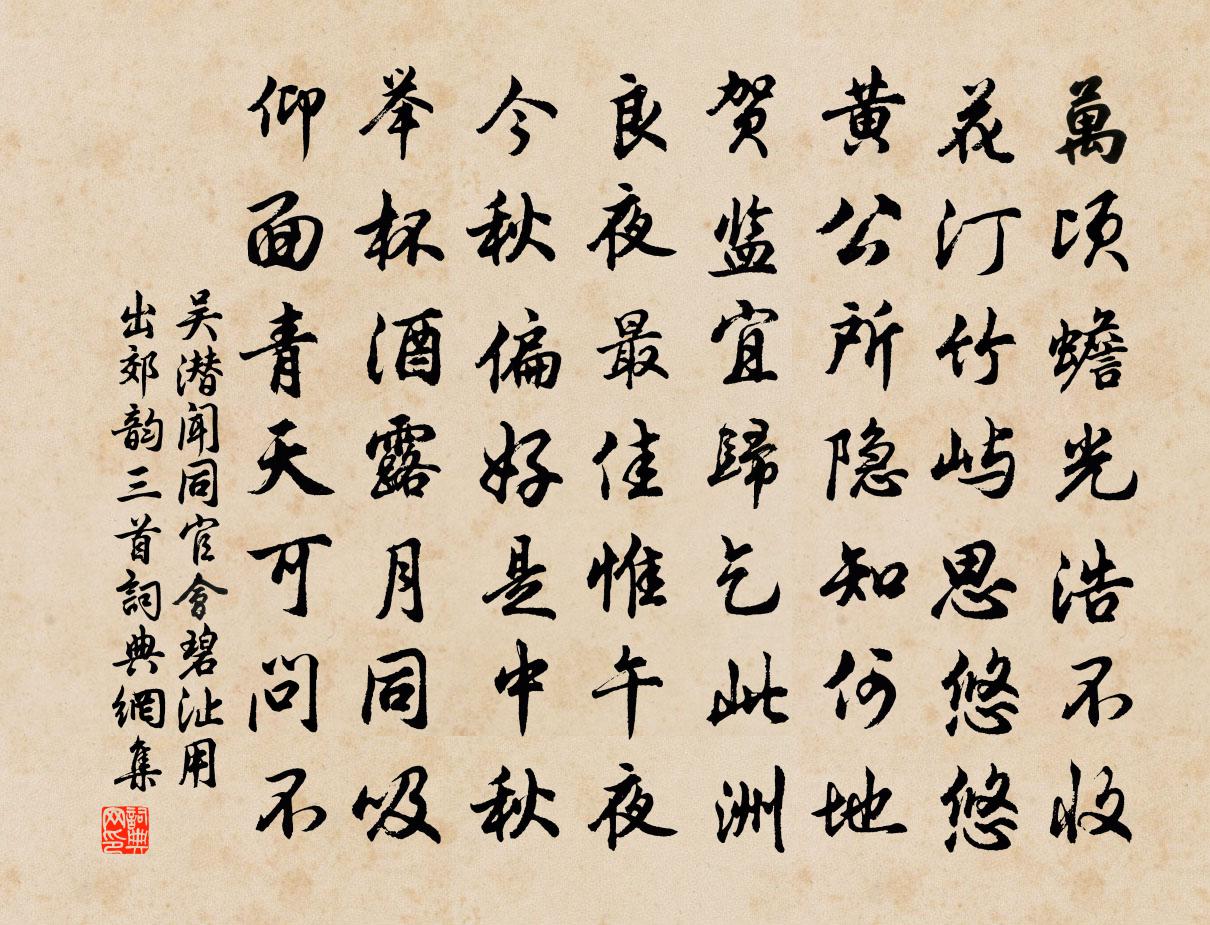 萬顷蟾光浩不收
花汀竹屿思悠悠
黄公所隐知何地
贺监宜歸乞此洲
良夜最佳惟午夜
今秋偏好是中秋
举杯酒露月同吸
仰面青天可问不
吴潜闻同官會碧沚用
出郊韵三首詞典網集
詞典
网印